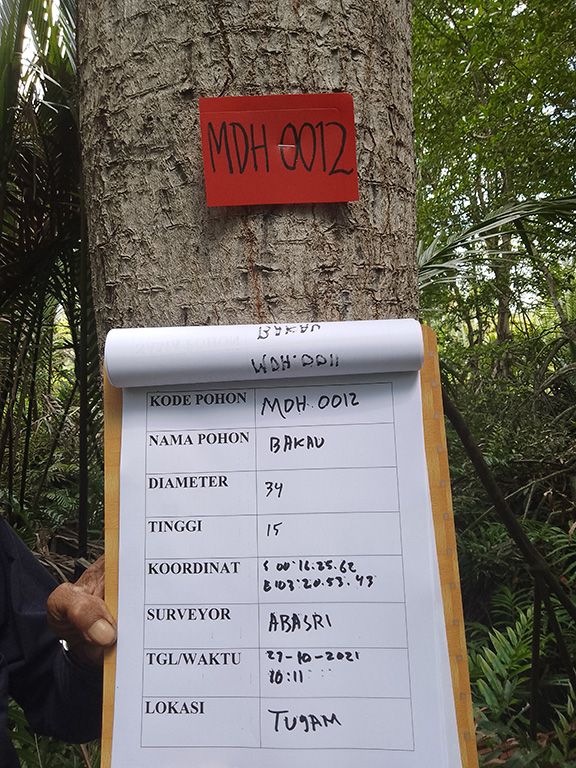 MDH 0012
BAKAU
MDH.0011
KODE POHON MDH.0012
NAMA POHON BAKAU
DIAMETER 34
TINGGI 15
KOORDINAT S 00°16.25.62
E103°20.53.43
SURVEYOR ABASRI
TGL/WAKTU 27-10-2021
10:11
LOKASI TUGAM